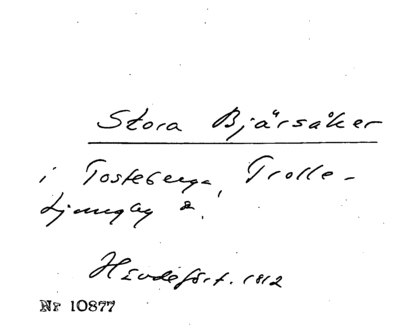 Stora Bjärsåker
i Tosteberga, Trolle-
Ljungby
Hävdeført. 1812
Nr 10877